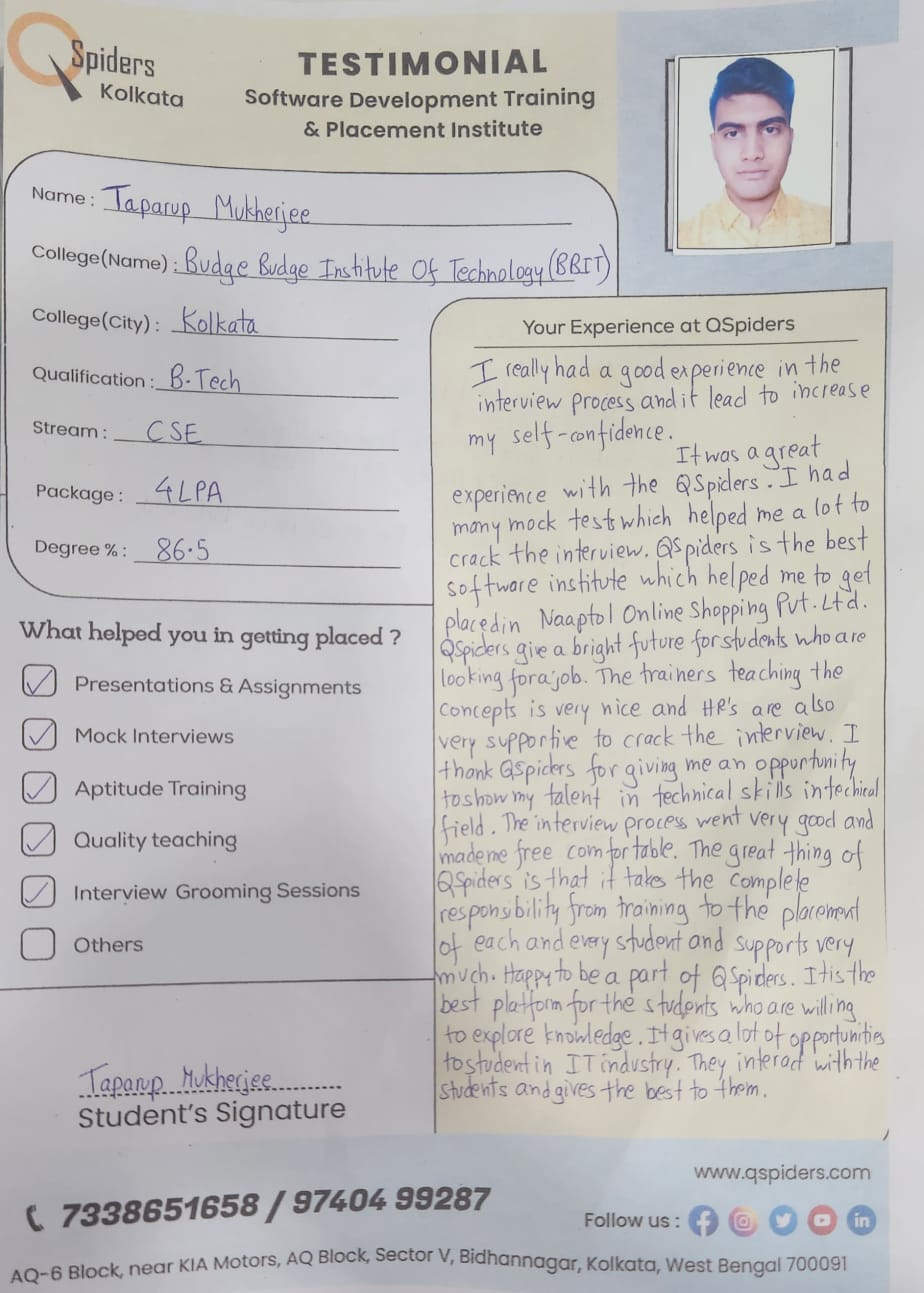 QSpiders
Kolkata
TESTIMONIAL
Software Development Training
& Placement Institute
Name : Taparup Mukherjee
College(Name) : Budge Budge Institute Of Technology (BBIT)
College(City) : Kolkata
Qualification : B.Tech
Stream : CSE
Package : 4LPA
Degree % : 86.5
What helped you in getting placed ?
Presentations & Assignments
Mock Interviews
Aptitude Training
Quality teaching
Interview Grooming Sessions
Others
Taparup Mukherjee
Student's Signature
Your Experience at QSpiders
I really had a good experience in the
interview process and it lead to increase
my self-confidence.
It was a great
experience with the QSpiders. I had
many mock tests which helped me a lot to
crack the interview. QSpiders is the best
software institute which helped me to get
placed in Naaptol Online Shopping Pvt. Ltd.
QSpiders give a bright future for students who are
looking for a job. The trainers teaching the
concepts is very nice and HR's are also
very supportive to crack the interview. I
thank QSpiders for giving me an oppurtunity
to show my talent in technical skills in techical
field. The interview process went very good and
made me free comfortable. The great thing of
QSpiders is that it takes the complete
responsibility from training to the placement
of each and every student and supports very
much. Happy to be a part of QSpiders. It is the
best platform for the students who are willing
to explore knowledge. It gives a lot of opportunities
to student in IT industry. They interact with the
students and gives the best to them.
www.qspiders.com
7338651658 / 97404 99287
Follow us :
AQ-6 Block, near KIA Motors, AQ Block, Sector V, Bidhannagar, Kolkata, West Bengal 700091